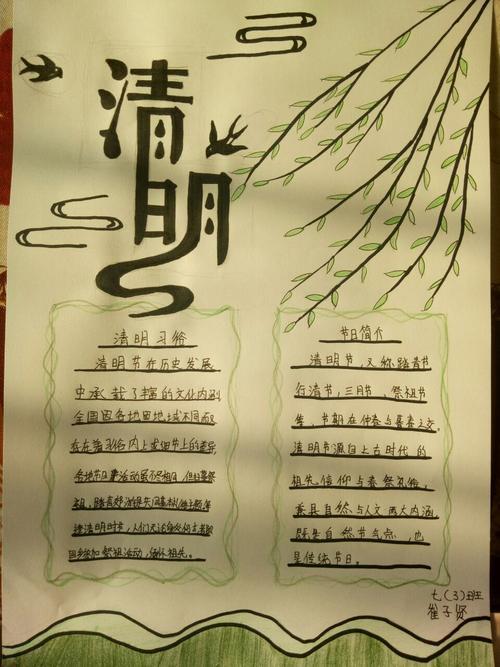 清明
清明习俗
清明节在历史发展
中承载了丰富的文化内涵
全国因各地因地域不同而
存在着习俗内上或细节上的差异
各地节日活动虽不尽相同,但扫墓祭
祖、踏青郊游是共同基本礼俗主题
清明时节,人们无论
回乡参加祭祖活动,缅怀祖先。
节日简介
清明节,又称踏青节
行清节,三月节、祭祖节
等,节期在仲春与暮春之交。
清明节源自上古时代的
祖先信仰与春祭礼俗,
兼具自然与人文两大内涵,
既是自然节气点,也
是传统节日。
七(3)班
崔子贤